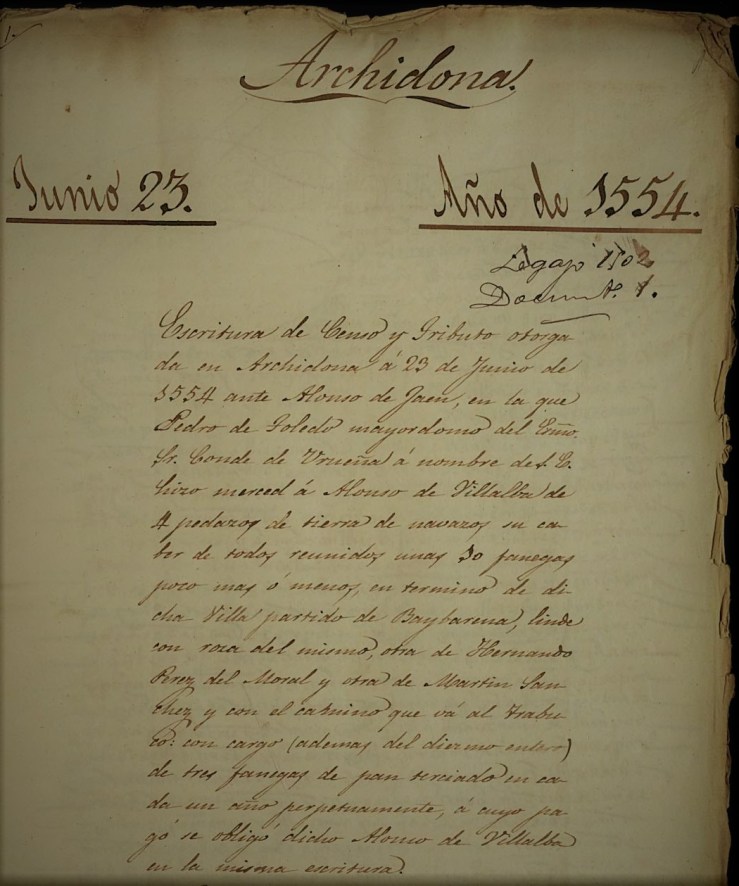 1.
Archidona.
Junio 23.
Año de 1554.
Legajo 1502
Docum.to. 1.
Escritura de Censo y Tributo otorga
da en Archidona á 23 de Junio de
1554 ante Alonso de Jaen, en la que
Pedro de Toledo mayordomo del Exmo.
Sr. Conde de Urueña á nombre de S. E.
hizo merced á Alonso de Villalba de
4 pedazos de tierra de navazos su ca-
ber de todos reunidos unas 30 fanegas
poco mas ó menos, en termino de di
cha Villa partido de Baybarena, linde
con roza del mismo, otra de Hernando
Perez del Moral y otra de Martin San
chez y con el camino que vá al Trabu
co: con cargo (ademas del diezmo entero)
de tres fanegas de pan terciado en ca-
da un año perpetuamente, á cuyo pa-
gó se obligó dicho Alonso de Villalba
en la misma escritura.